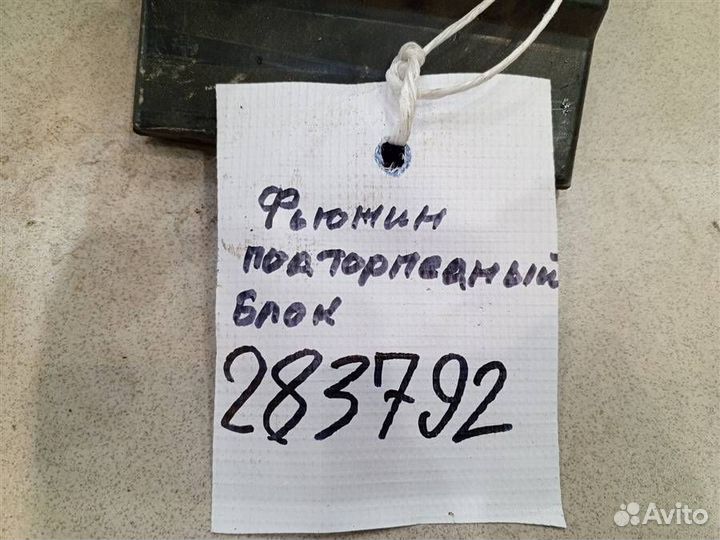 Фьюжин
подторпедный
блок
283792
Avito